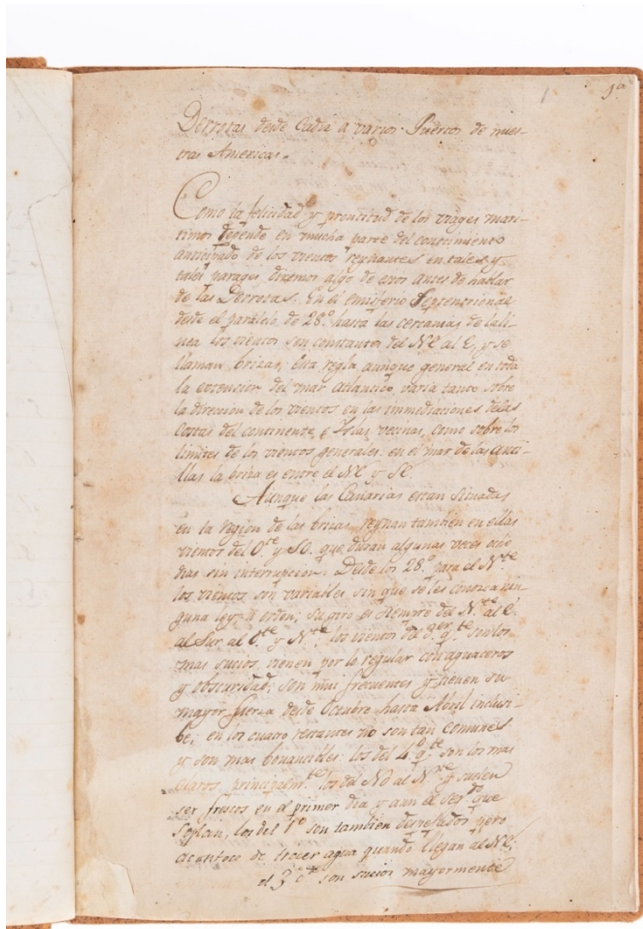 1
1º
Derrotas desde Cadiz a varios Puertos de nues-
tras Americas.
Como la felicidad y prontitud de los viages mari-
timos depende en mucha parte del conocimiento
anticipado de los vientos reynantes en tales y
tales parages diremos algo de esto antes de hablar
de las Derrotas. En el emisferio Septentrional
desde el paralelo de 28.º hasta las cercanias de la li-
nea los vientos son constantes del N.E al E, y se
llaman brizas; Esta regla aunque general en toda
la extencion del mar Atlantico, varia tanto sobre
la direccion de los vientos en las immediaciones de las
Costas del continente, e Yslas vecinas, como sobre los
limites de los vientos generales: en el mar de las Anti-
llas la briza es entre el NE y SE.
Aunque las Canarias estan situadas
en la region de las brizas, reynan tambien en ellas
vientos del O.te y SO. que duran algunas veces ocho
dias sin interrupcion. Desde los 28.º para el N.rte
los vientos son variables sin que se les conozca nin-
guna ley, u orden; su giro es siempre del N.rte al E
al Sur al O.te y N.rte los vientos del 3.er q.te son los
mas sucios, vienen por lo regular con aguaceros
y obscuridad, son mui frecuentes y tienen su
mayor fuerza desde Octubre hasta Abril inclusi-
be; en los cuatro restantes no son tan comunes
y son mas bonancibles: los del 4.º q.te son los mas
claros, principalm.te los del NO al N.rte y suelen
ser frescos en el primer dia y aun el seg.do que
soplan, los del 1.º son tambien despejados pero
acontece de traer agua quando llegan al NE;
el 2.º son sucios mayormente